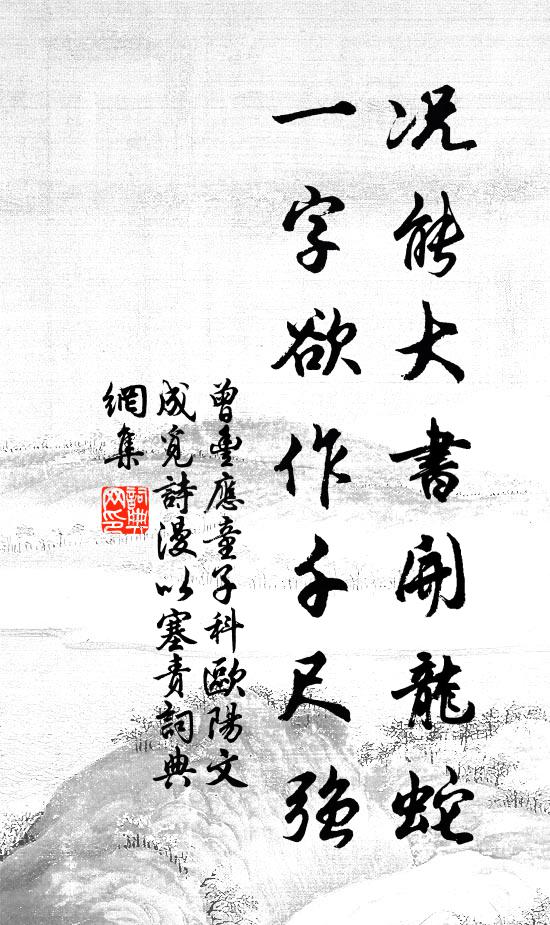 况能大書開龍蛇
一字欲作千尺强
曾豐應童子科歐陽文
成覓詩漫以塞責詞典
網集
詞典
网印